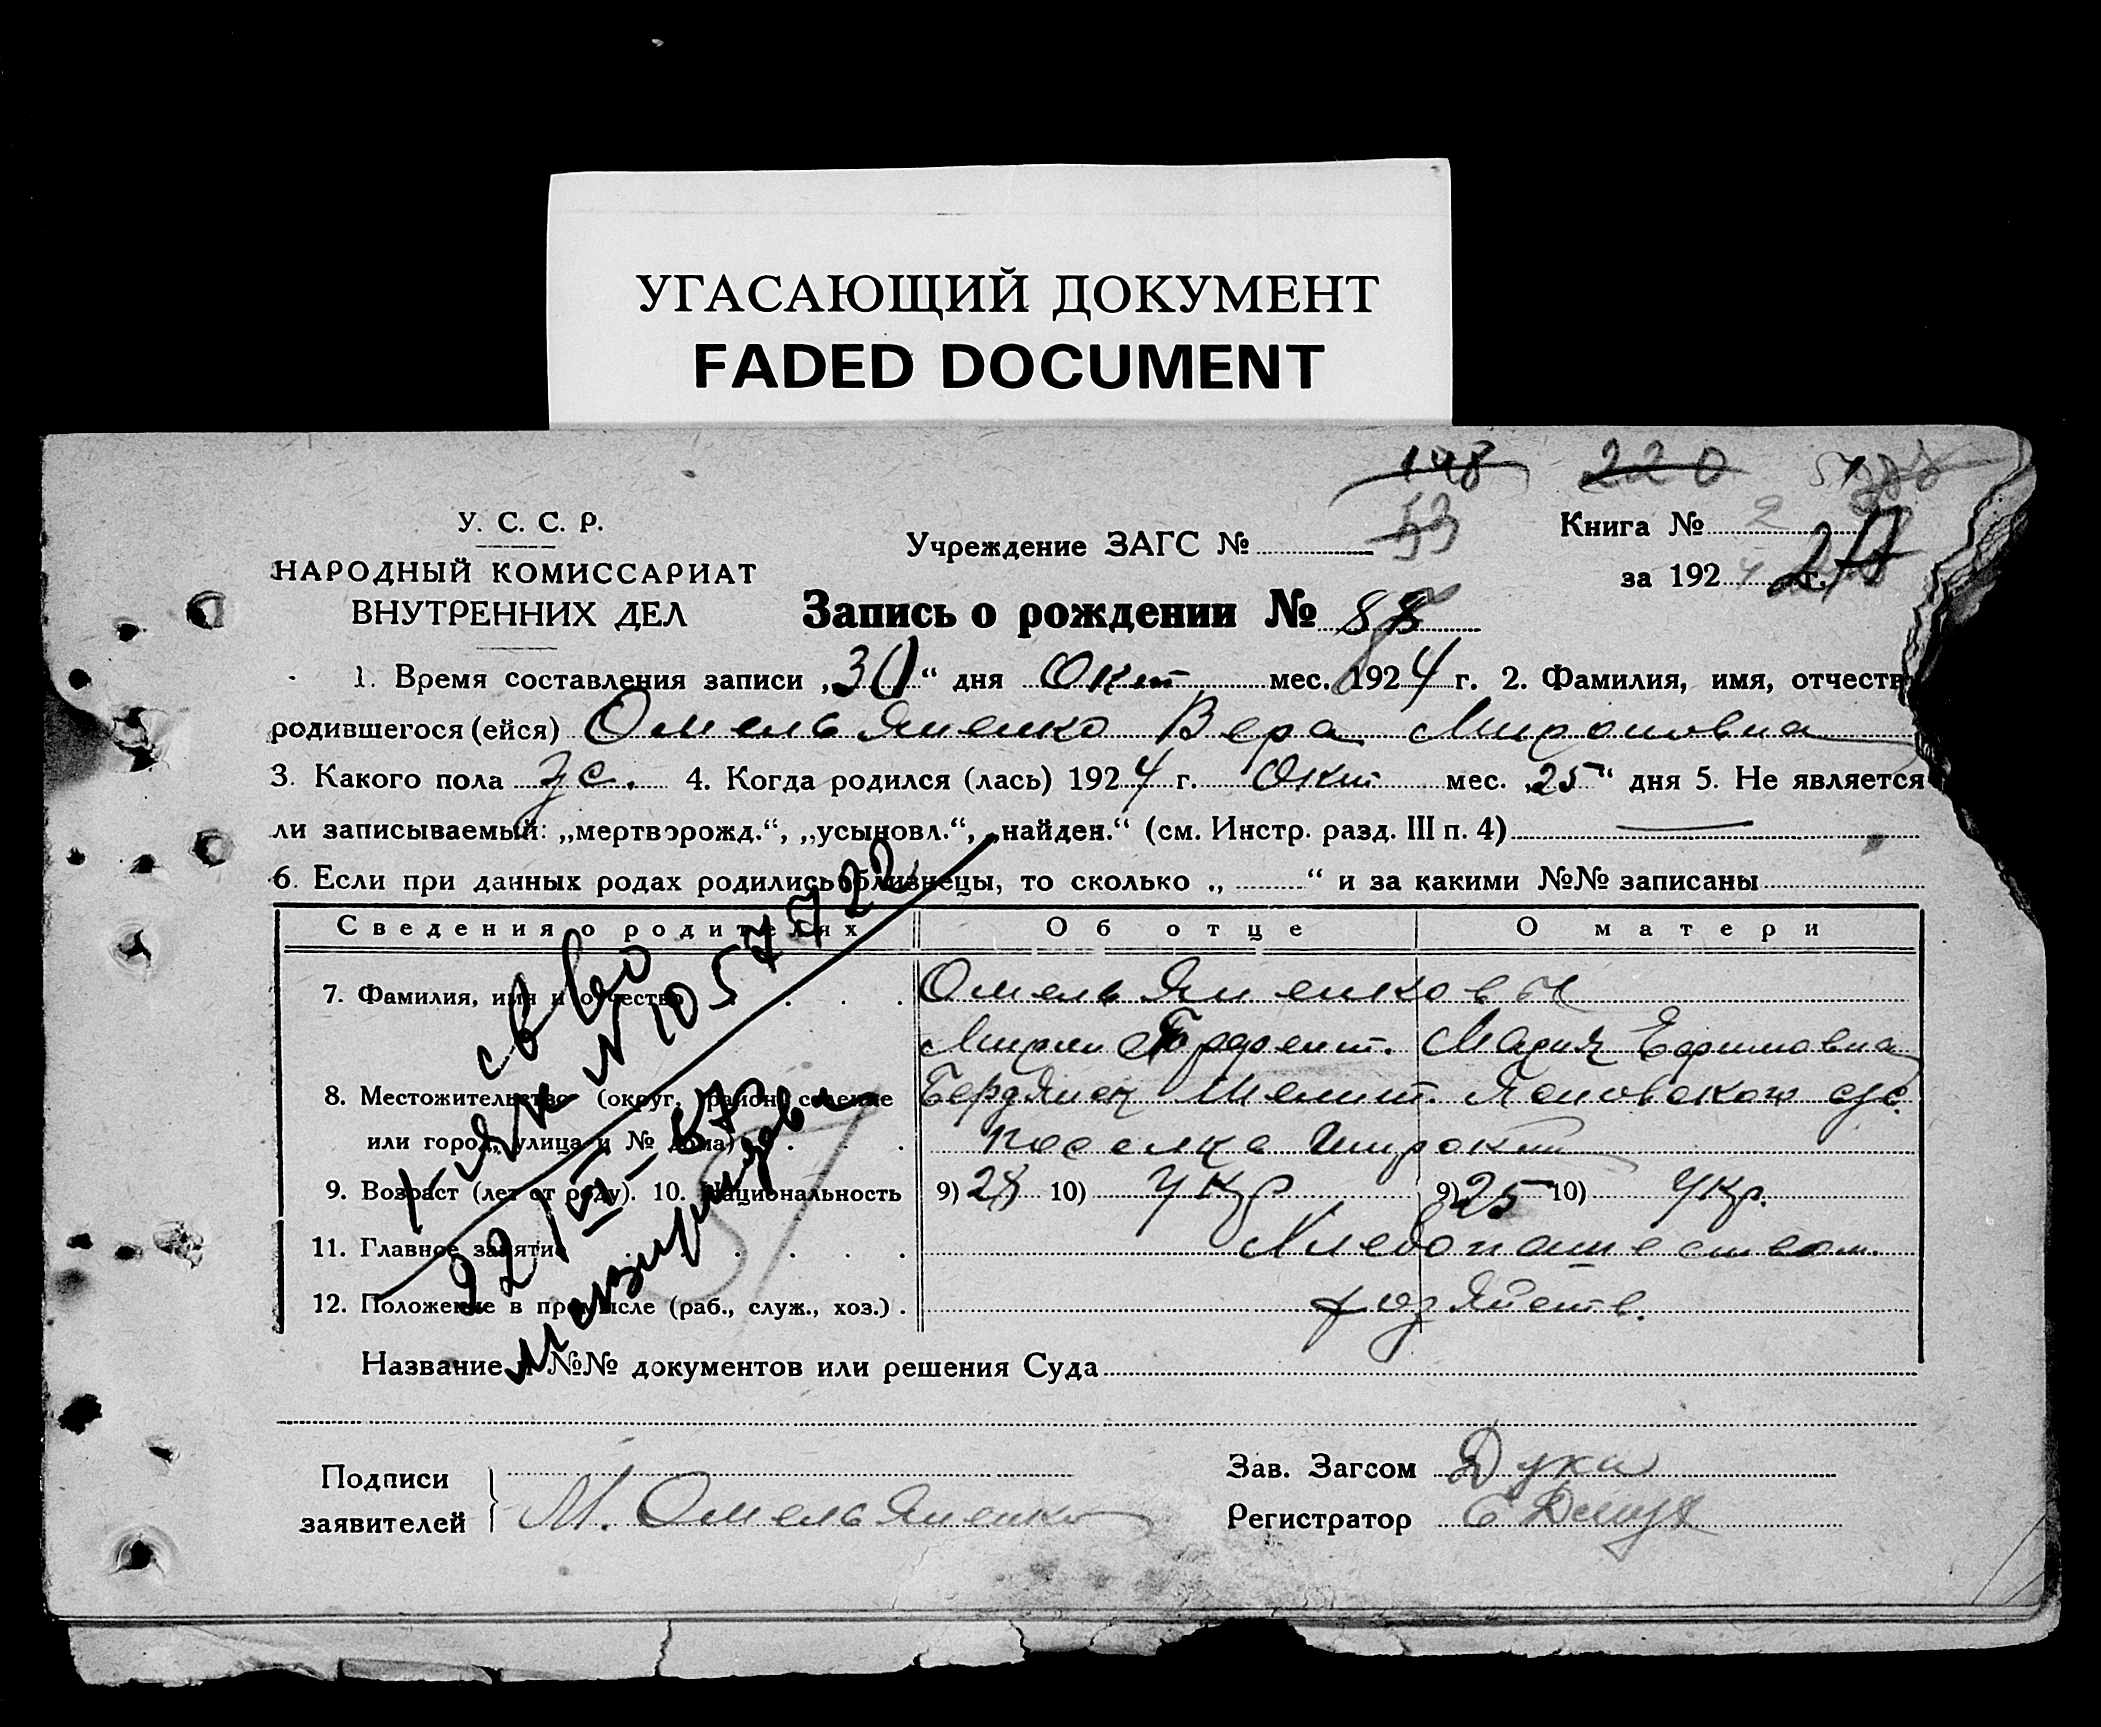 УГАСАЮЩИЙ ДОКУМЕНТ
FADED DOCUMENT
148 220
У. С. С. Р.
НАРОДНЫЙ КОМИССАРИАТ
ВНУТРЕННИХ ДЕЛ
Учреждение ЗАГС № 53
Книга № 2
за 1924 г.
Запись о рождении № 88
1. Время составления записи „30“ дня Окт мес. 1924 г. 2. Фамилия, имя, отчеств
родившегося (ейся) Омельяненко Вера Мироновна
3. Какого пола ж. 4. Когда родился (лась) 1924 г. Окт мес. „25“ дня 5. Не является
ли записываемый: „мертворожд.“, „усыновл.“, „найден.“ (см. Инстр. разд. III п. 4)
6. Если при данных родах родились близнецы, то сколько „ “ и за какими №№ записаны
Сведения о родителях Об отце О матери
7. Фамилия, имя и отчество Омельяненковы
Мирон Мария Ефимовна
8. Местожительство (округ, район, селение
или город, улица и № дома) поселка Широкий
9. Возраст (лет от роду). 10. Национальность 9) 28 10) Укр 9) 25 10) Укр.
11. Главное занятие Хлебопашеством.
12. Положение в промысле (раб., служ., хоз.) хозяйств.
св во
№ 1057722
22/VI-87
Название и №№ документов или решения Суда
Подписи
заявителей М. Омельяненко
Зав. Загсом Дука
Регистратор